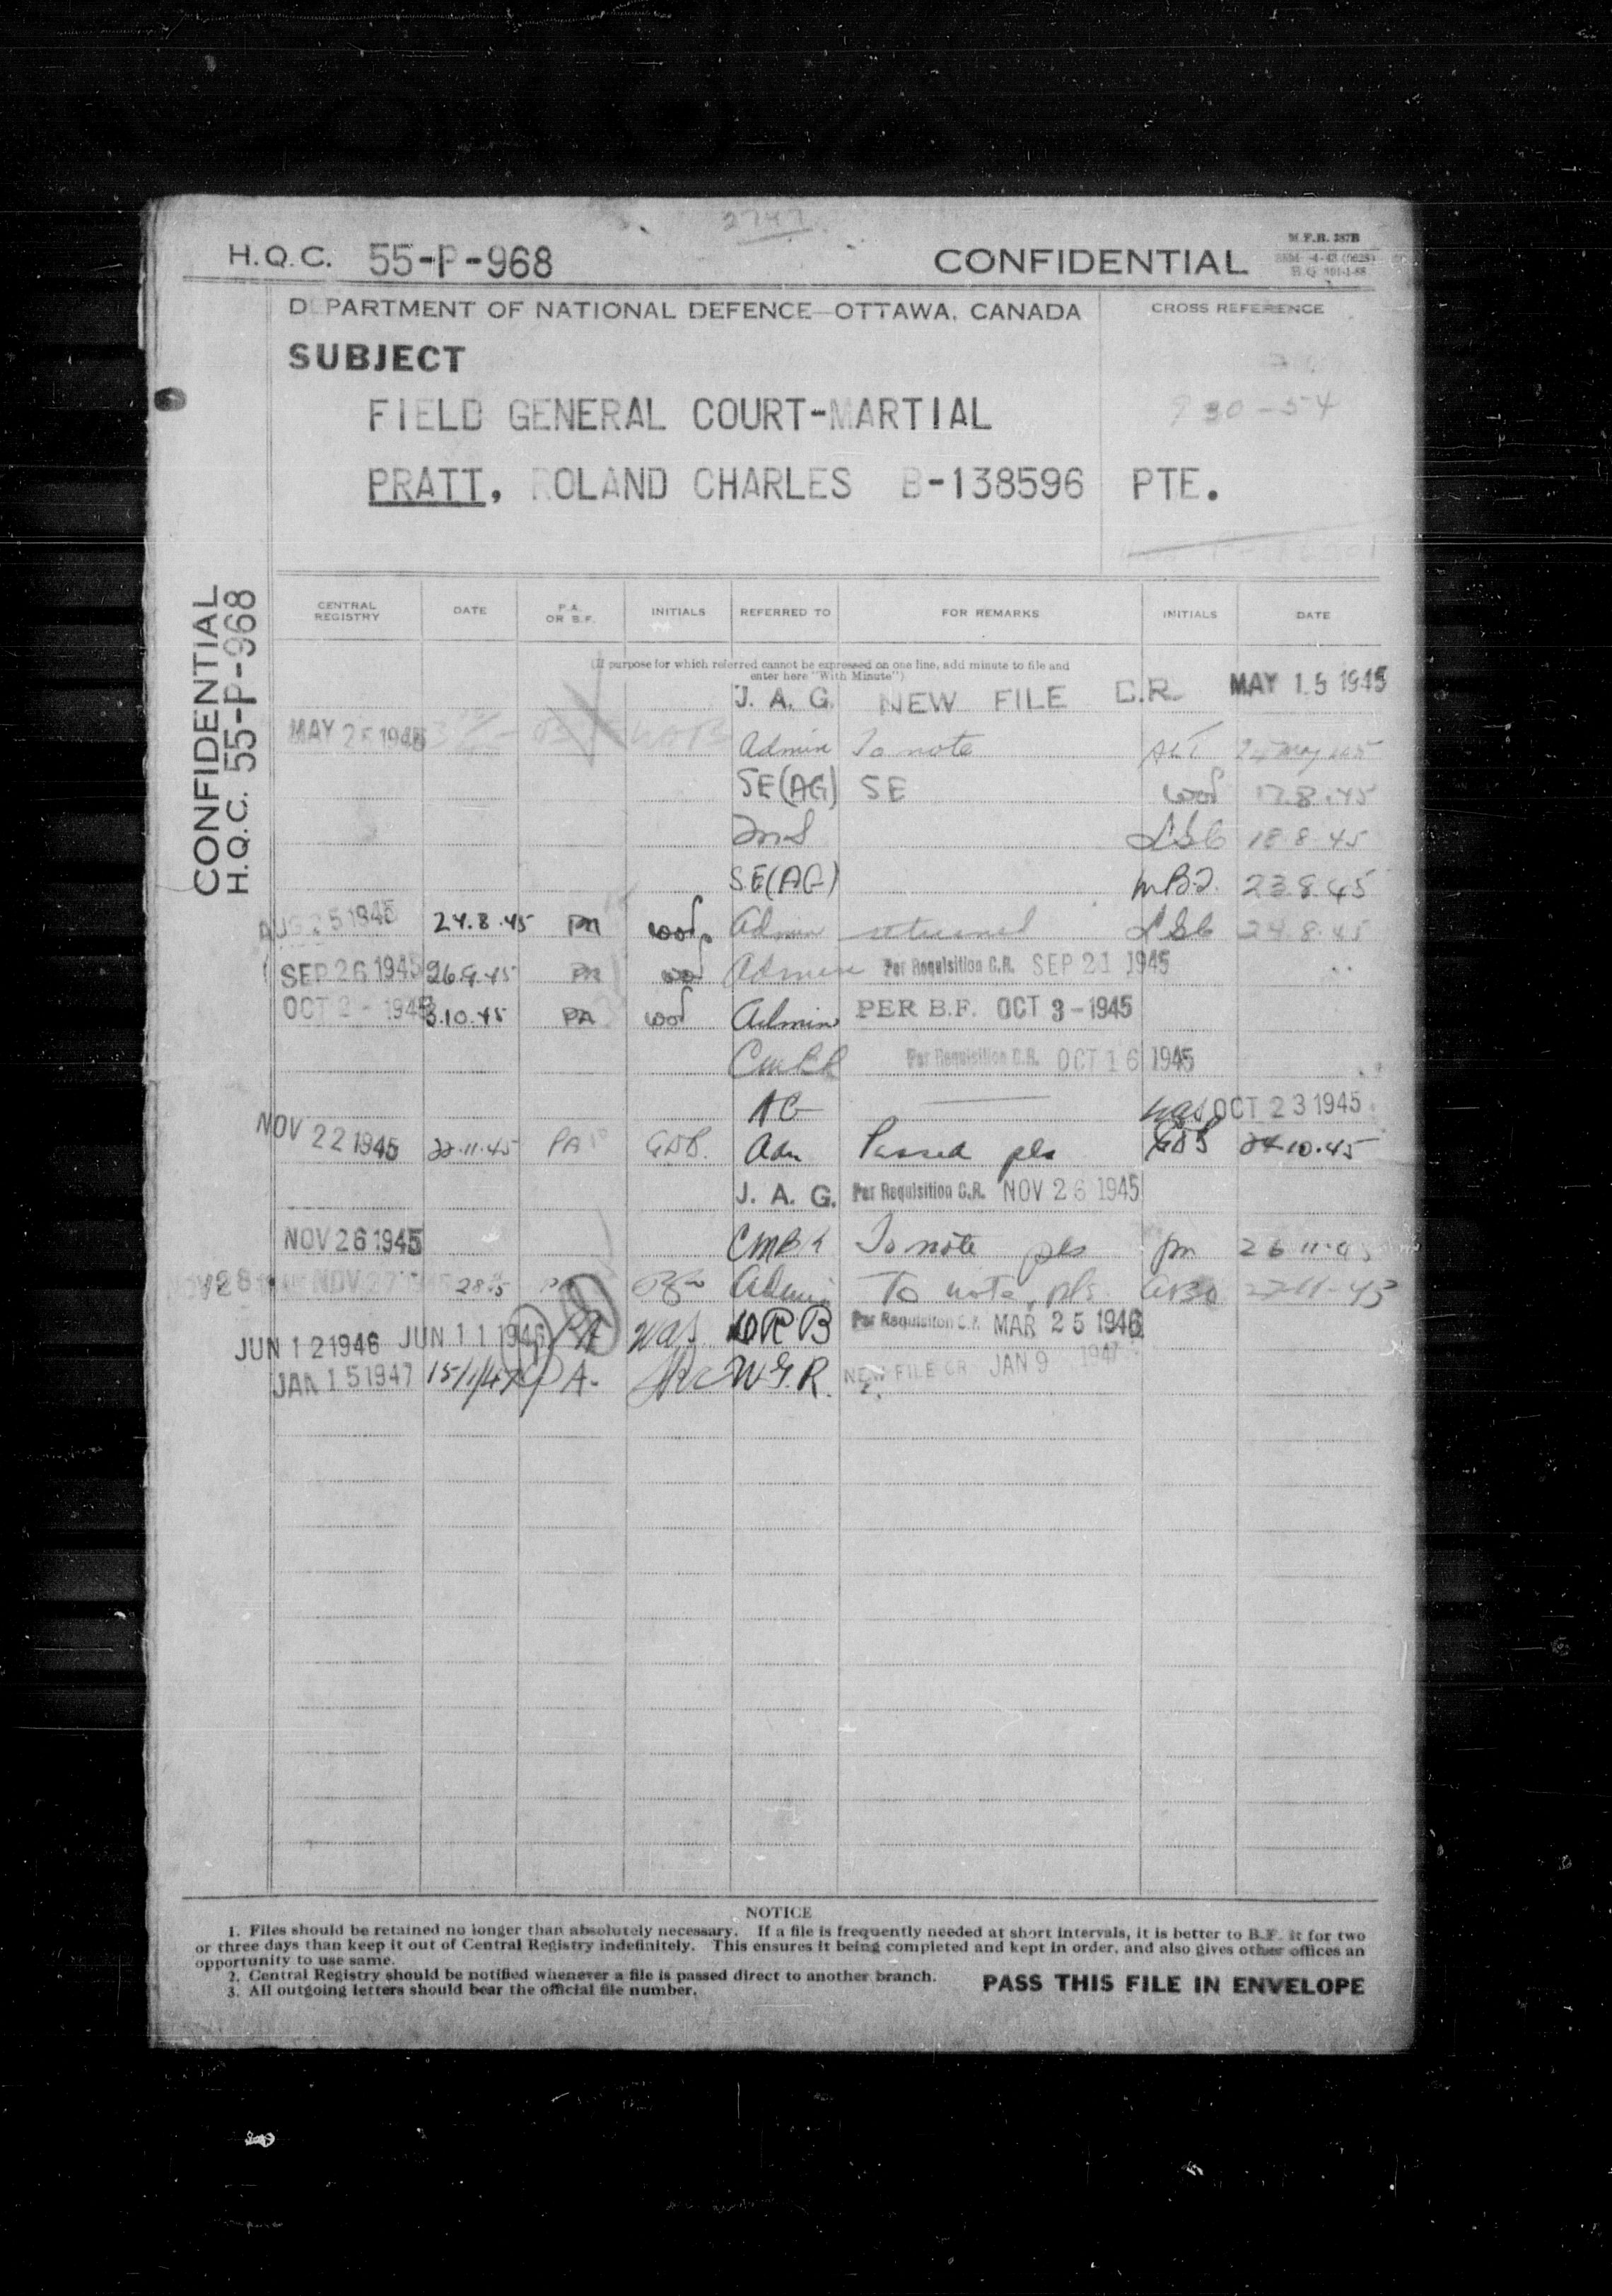 2747
H.Q.C. 55-P-968 CONFIDENTIAL
M.F.B. 287B
DEPARTMENT OF NATIONAL DEFENCE—OTTAWA, CANADA CROSS REFERENCE
SUBJECT
FIELD GENERAL COURT-MARTIAL
930-54
PRATT, ROLAND CHARLES B-138596 PTE.
CONFIDENTIAL
H.Q.C. 55-P-968
CENTRAL REGISTRY DATE P.A. OR B.F. INITIALS REFERRED TO FOR REMARKS INITIALS DATE
(If purpose for which referred cannot be expressed on one line, add minute to file and
enter here "With Minute")
J. A. G. NEW FILE C.R. MAY 15 1945
MAY 1945 Admin To note
SE(AG) SE 17.8.45
18.8.45
SE(AG) 23.8.45
AUG 25 1945 24.8.45 PA Admin returned 24.8.45
SEP 26 1945 26.9.45 PA Admin Per Requisition C.R. SEP 21 1945
OCT 2 - 1945 3.10.45 PA Admin PER B.F. OCT 3-1945
Per Requisition C.R. OCT 16 1945
AG was OCT 23 1945
NOV 22 1945 22.11.45 PA GDB. Adm Passed pls GDB 24.10.45
J. A. G. Per Requisition C.R. NOV 26 1945
NOV 26 1945 To note pls 26.11.45
NOV 28 NOV 27 Admin To note, pls. 27-11-45
JUN 12 1946 JUN 11 1946 PA was WRB Per Requisition C.R. MAR 25 1946
JAN 15 1947 15/1/47 P.A. W.G.R. NEW FILE CR JAN 9 1947
NOTICE
1. Files should be retained no longer than absolutely necessary. If a file is frequently needed at short intervals, it is better to B.F. it for two
or three days than keep it out of Central Registry indefinitely. This ensures it being completed and kept in order, and also gives other offices an
opportunity to use same.
2. Central Registry should be notified whenever a file is passed direct to another branch.
3. All outgoing letters should bear the official file number.
PASS THIS FILE IN ENVELOPE